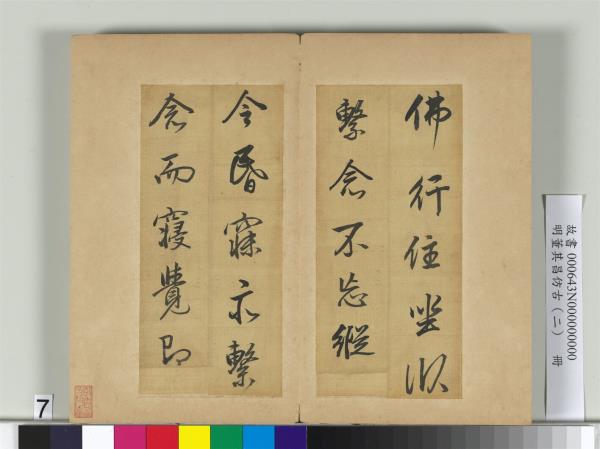 佛行住坐臥
繫念不忘縱
令昏寐亦繫
念而寢覺即
故書000643N000000000
明董其昌仿古(二) 冊
7